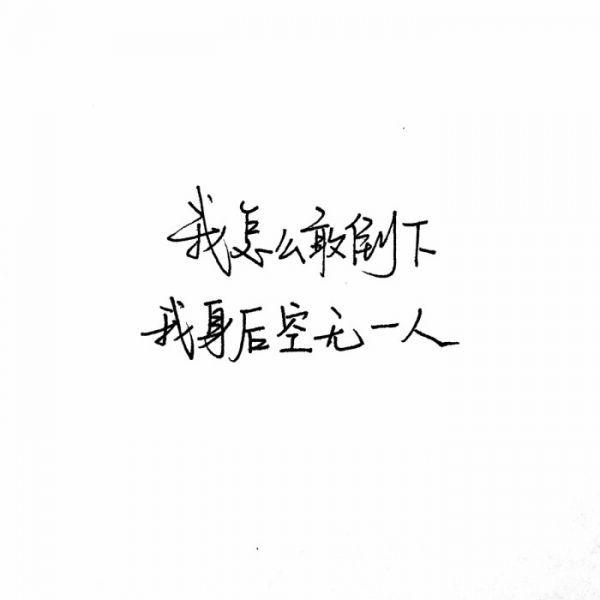 我怎么敢倒下
我身后空无一人